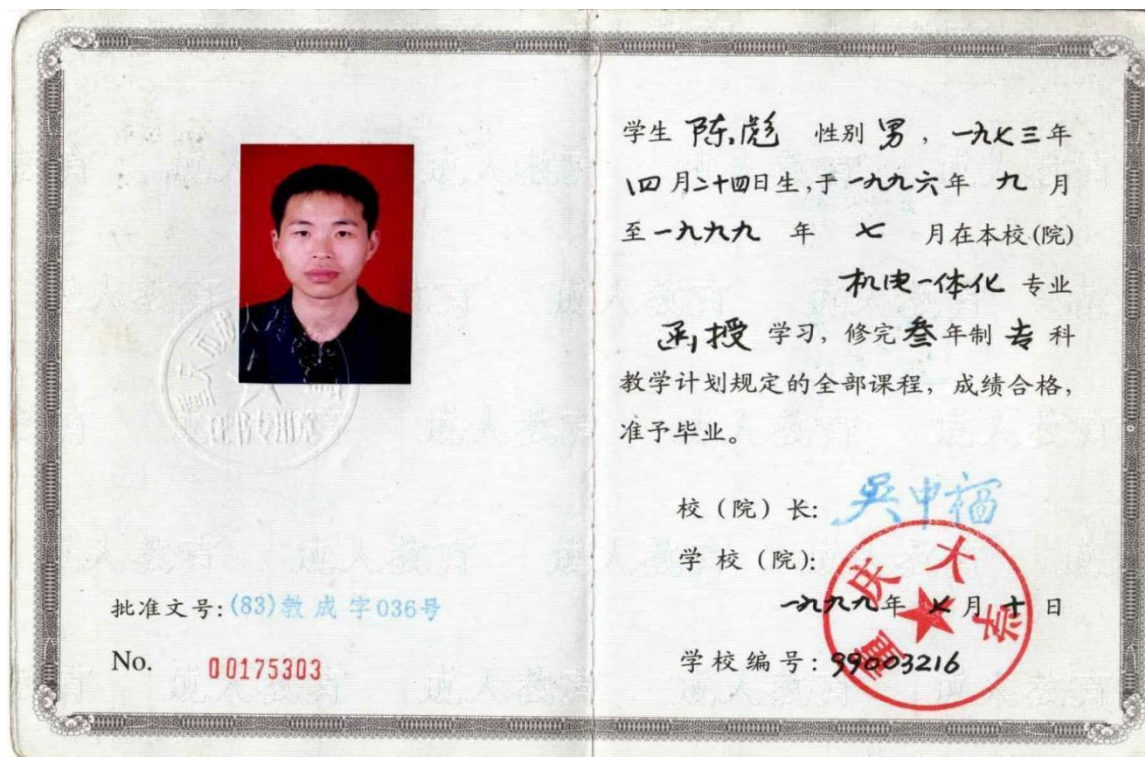 批准文号:(83)教成字036号
No. 00175303
学生 陈彪 性别 男,一九七三年
四月二十四日生,于一九九六年 九 月
至一九九九 年 七 月在本校(院)
机电一体化 专业
函授 学习,修完叁年制 专 科
教学计划规定的全部课程,成绩合格,
准予毕业。
校(院)长: 吴中福
学校(院):
重庆大学
一九九九年 七 月 十 日
学校编号:99003216
证书专用章
成人教育